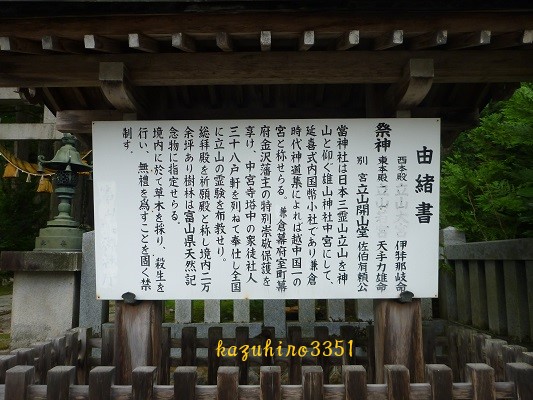 由緒書
祭神
西本殿 立山 伊弉那岐命
東本殿 立山 天手力雄命
別宮 立山開山堂 佐伯有頼公
當神社は日本三霊山立山を神
山と仰ぐ雄山神社中宮にして、
延喜式内国幣小社であり兼倉
時代神道集によれば越中国一の
宮と称せらる。兼倉幕府室町幕
府金沢藩主の特別崇敬保護を
享け、中宮寺塔中の衆徒社人
三十八戸軒を列ねて奉仕し全国
に立山の霊験を布教せり。
総拝殿を祈願殿と称し境内二万
余坪あり樹林は富山県天然記
念物に指定せらる。
境内に於て草木を採り、殺生を
行い、無禮を為すことを固く禁
制す。
kazuhiro3351